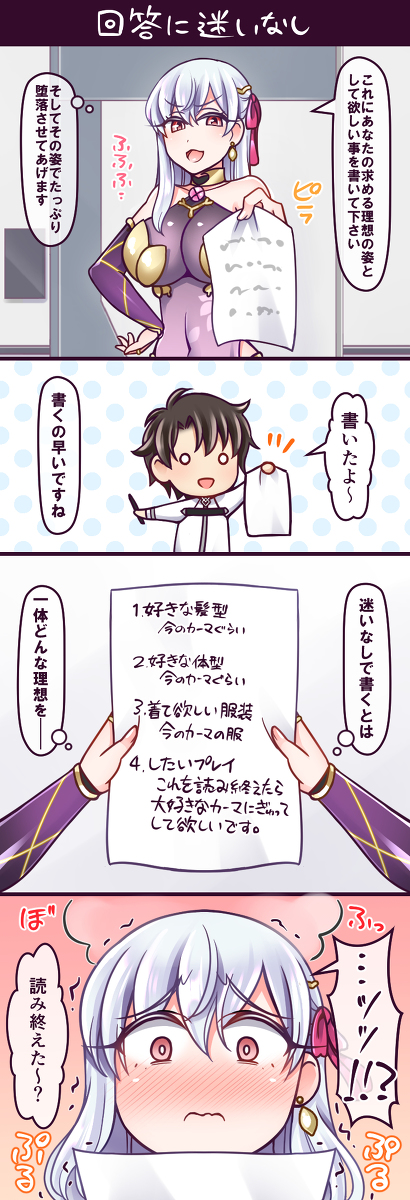 回答に迷いなし
これにあなたの求める理想の姿と
して欲しい事を書いて下さい
ピラ
ふふふ…
そしてその姿でたっぷり
堕落させてあげます
書いたよ～
書くの早いですね
迷いなしで書くとは
1.好きな髪型
今のカーマぐらい
2.好きな体型
今のカーマぐらい
3.着て欲しい服装
今のカーマの服
4.したいプレイ
これを読み終えたら
大好きなカーマにぎゅって
して欲しいです。
一体どんな理想を──
ぼふっ
…ッッ!!?
読み終えた～?
ぷる
ぷる